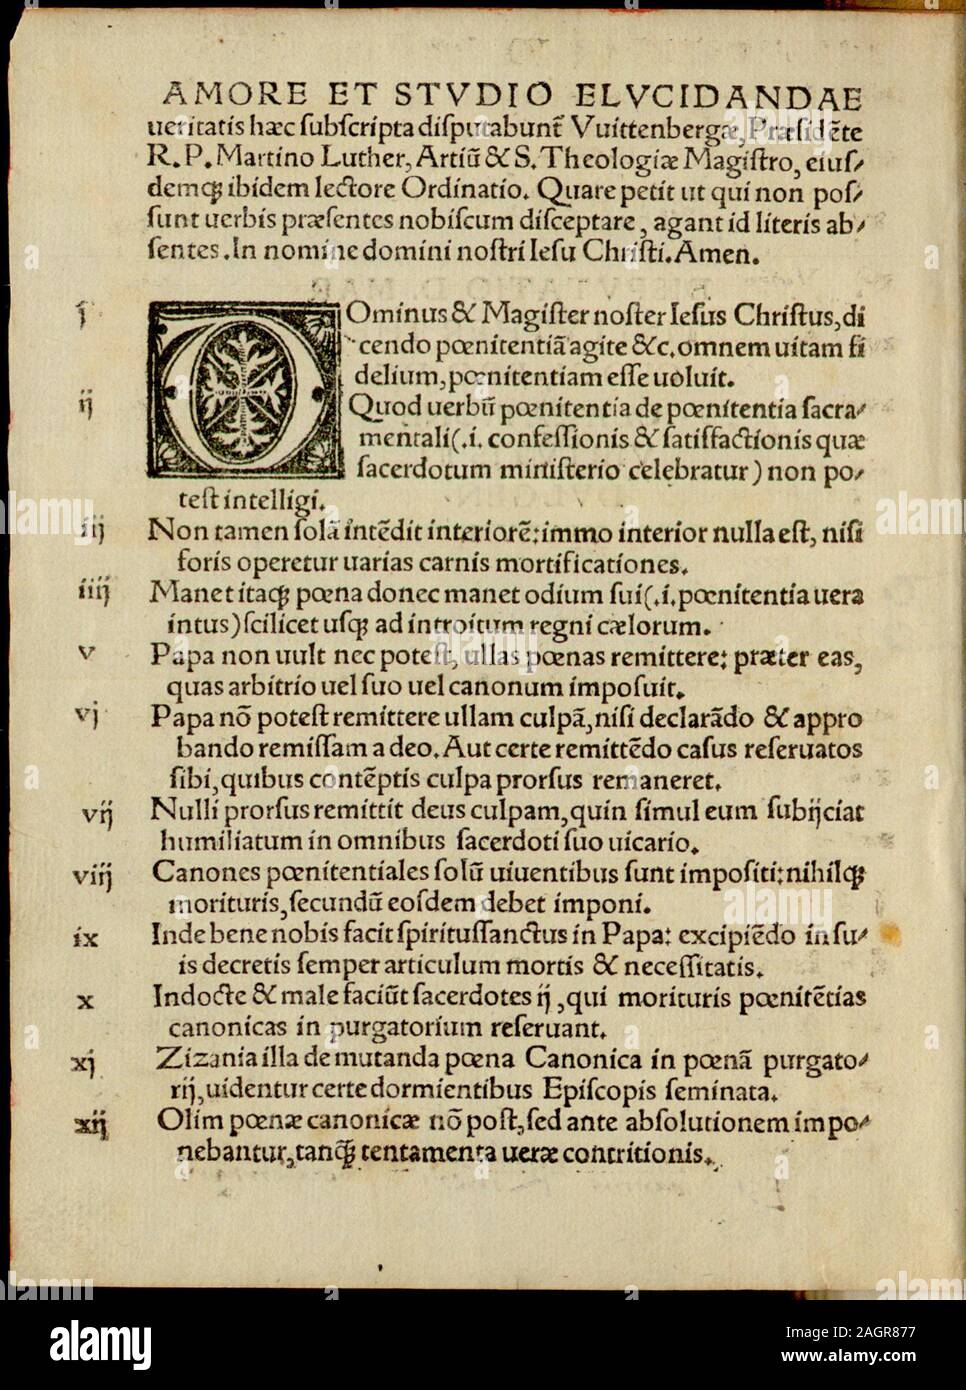 AMORE ET STVDIO ELVCIDANDAE
ueritatis hæc ſubſcripta diſputabunt̃ Vuittenbergæ, Præſidẽte
R. P. Martino Luther, Artiũ & S. Theologiæ Magiſtro, eiuſ⸗
demq́ꝫ ibidem lectore Ordinatio. Quare petit ut qui non poſ⸗
ſunt uerbis præſentes nobiſcum diſceptare, agant id literis ab⸗
ſentes. In nomine domini noſtri Ieſu Chriſti. Amen.
j DOminus & Magiſter noſter Ieſus Chriſtus, di
cendo pœnitentiã agite &c. omnem uitam fi
delium, pœnitentiam eſſe uoluit.
ij Quod uerbũ pœnitentia de pœnitentia ſacra⸗
mentali (.i. confeſſionis & ſatiſfactionis quæ
ſacerdotum miniſterio celebratur) non po⸗
teſt intelligi.
iij Non tamen ſolã intẽdit interiorẽ: immo interior nulla eſt, niſi
foris operetur uarias carnis mortificationes.
iiij Manet itaq́ꝫ pœna donec manet odium ſui (.i. pœnitentia uera
intus) ſcilicet uſq́ꝫ ad introitum regni cælorum.
v Papa non uult nec poteſt, ullas pœnas remittere: præter eas,
quas arbitrio uel ſuo uel canonum impoſuit.
vj Papa nõ poteſt remittere ullam culpã, niſi declarãdo & appro
bando remiſſam a deo. Aut certe remittẽdo caſus reſeruatos
ſibi, quibus contẽptis culpa prorſus remaneret.
vij Nulli prorſus remittit deus culpam, quin ſimul eum ſubijciat
humiliatum in omnibus ſacerdoti ſuo uicario.
viij Canones pœnitentiales ſolũ uiuentibus ſunt impoſiti: nihilq́ꝫ
morituris, ſecundũ eoſdem debet imponi.
ix Inde bene nobis facit ſpirituſſanctus in Papa: excipiẽdo in ſu⸗
is decretis ſemper articulum mortis & neceſſitatis.
x Indocte & male faciũt ſacerdotes ij, qui morituris pœnitẽtias
canonicas in purgatorium reſeruant.
xj Zizania illa de mutanda pœna Canonica in pœnã purgato⸗
rij, uidentur certe dormientibus Epiſcopis ſeminata.
xij Olim pœnæ canonicæ nõ poſt, ſed ante abſolutionem impo⸗
nebantur, tanq́ꝫ tentamenta ueræ contritionis.
alamy
Image ID: 2AGR877
www.alamy.com